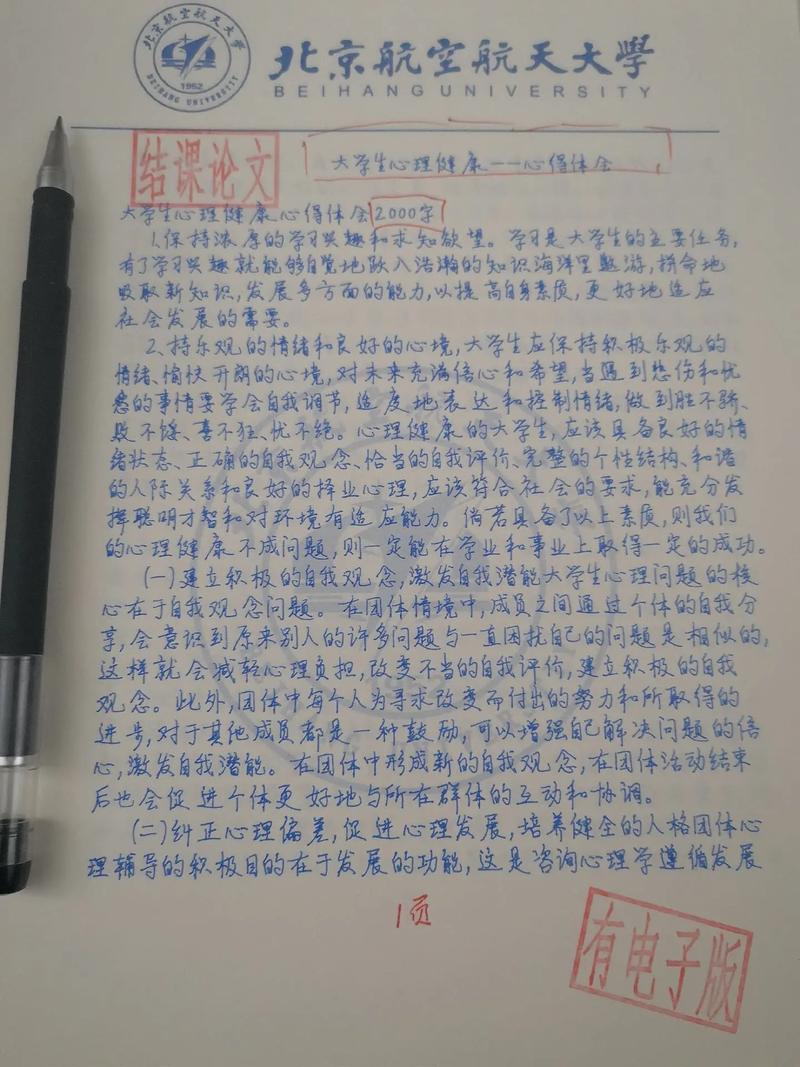 北京航空航天大学
BEIHANG UNIVERSITY
1952
BEIHANG UNIVERSITY
北京航空航天大學
BEIHANG UNIVERSITY
结课论文
大学生心理健康——心得体会
大学生心理健康心得体会2000字
1.保持浓厚的学习兴趣和求知欲望。学习是大学生的主要任务,
有了学习兴趣就能够自觉地跃入浩瀚的知识海洋里遨游,拼命地
吸取新知识,发展多方面的能力,以提高自身素质,更好地适应
社会发展的需要。
2、持乐观的情绪和良好的心境,大学生应保持积极乐观的
情绪、愉快开朗的心境,对未来充满信心和希望,当遇到悲伤和忧
愁的事情要学会自我调节,适度地表达和控制情绪,做到胜不骄、
败不馁、喜不狂、忧不绝。心理健康的大学生,应该具备良好的情
绪状态、正确的自我观念、恰当的自我评价、完整的个性结构、和谐
的人际关系和良好的择业心理,应该符合社会的要求,能充分发
挥聪明才智和对环境有适应能力。倘若具备了以上素质,则我们
的心理健康不成问题,则一定能在学业和事业上取得一定的成功。
(一)建立积极的自我观念,激发自我潜能大学生心理问题的核
心在于自我观念问题。在团体情境中,成员之间通过个体的自我分
享,会意识到原来别人的许多问题与一直困扰自己的问题是相似的,
这样就会减轻心理负担,改变不当的自我评价,建立积极的自我
观念。此外,团体中每个人为寻求改变而付出的努力和所取得的
进步,对于其他成员都是一种鼓励,可以增强自己解决问题的信
心,激发自我潜能。在团体中形成新的自我观念,在团体活动结束
后也会促进个体更好地与所在群体的互动和协调。
(二)纠正心理偏差,促进心理发展,培养健全的人格团体心
理辅导的积极目的在于发展的功能,这是咨询心理学遵循发展
1页
有电子版